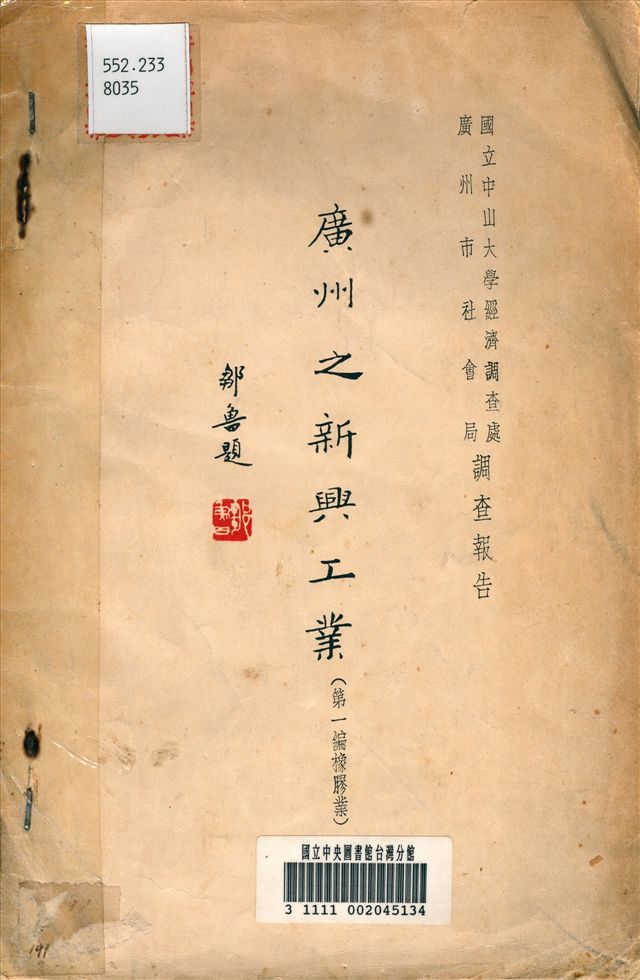 552.233
8035
國立中山大學經濟調查處
廣州市社會局
調查報告
廣州之新興工業
(第一編橡膠業)
鄒魯題
國立中央圖書館台灣分館
3 1111 002045134
191